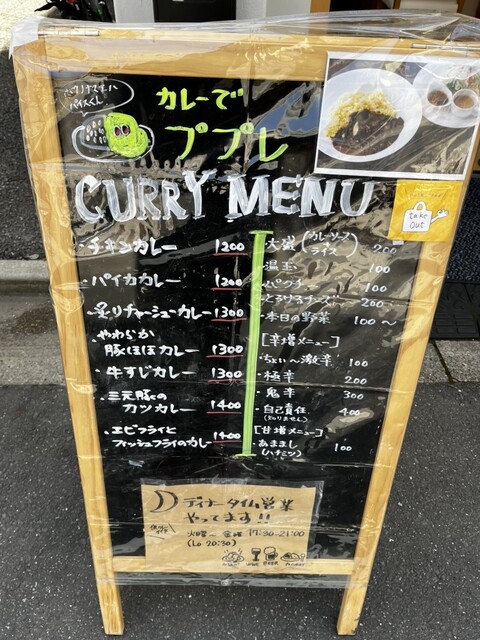 カレーで
ププレ
CURRY MENU
take
out
・チキンカレー 1200
・パイカカレー 1200
・炙りチャーシューカレー 1300
・やわらか
豚ほほカレー 1300
・牛すじカレー 1300
・三元豚の
カツカレー 1400
・エビフライと
フィッシュフライのカレー 1400
・大盛(カレーソース ライス) 200
・温玉 100
・パクチー 100
・とろけるチーズ 200
・本日の野菜 100〜
[辛増メニュー]
・ちょい〜激辛 100
・極辛 200
・鬼辛 300
・自己責任 400
(知りません)
[甘増メニュー]
・あままし 100
(ハチミツ)
ディナータイム営業
やってます!!
火曜〜金曜 17:30-21:00
(Lo 20:30)